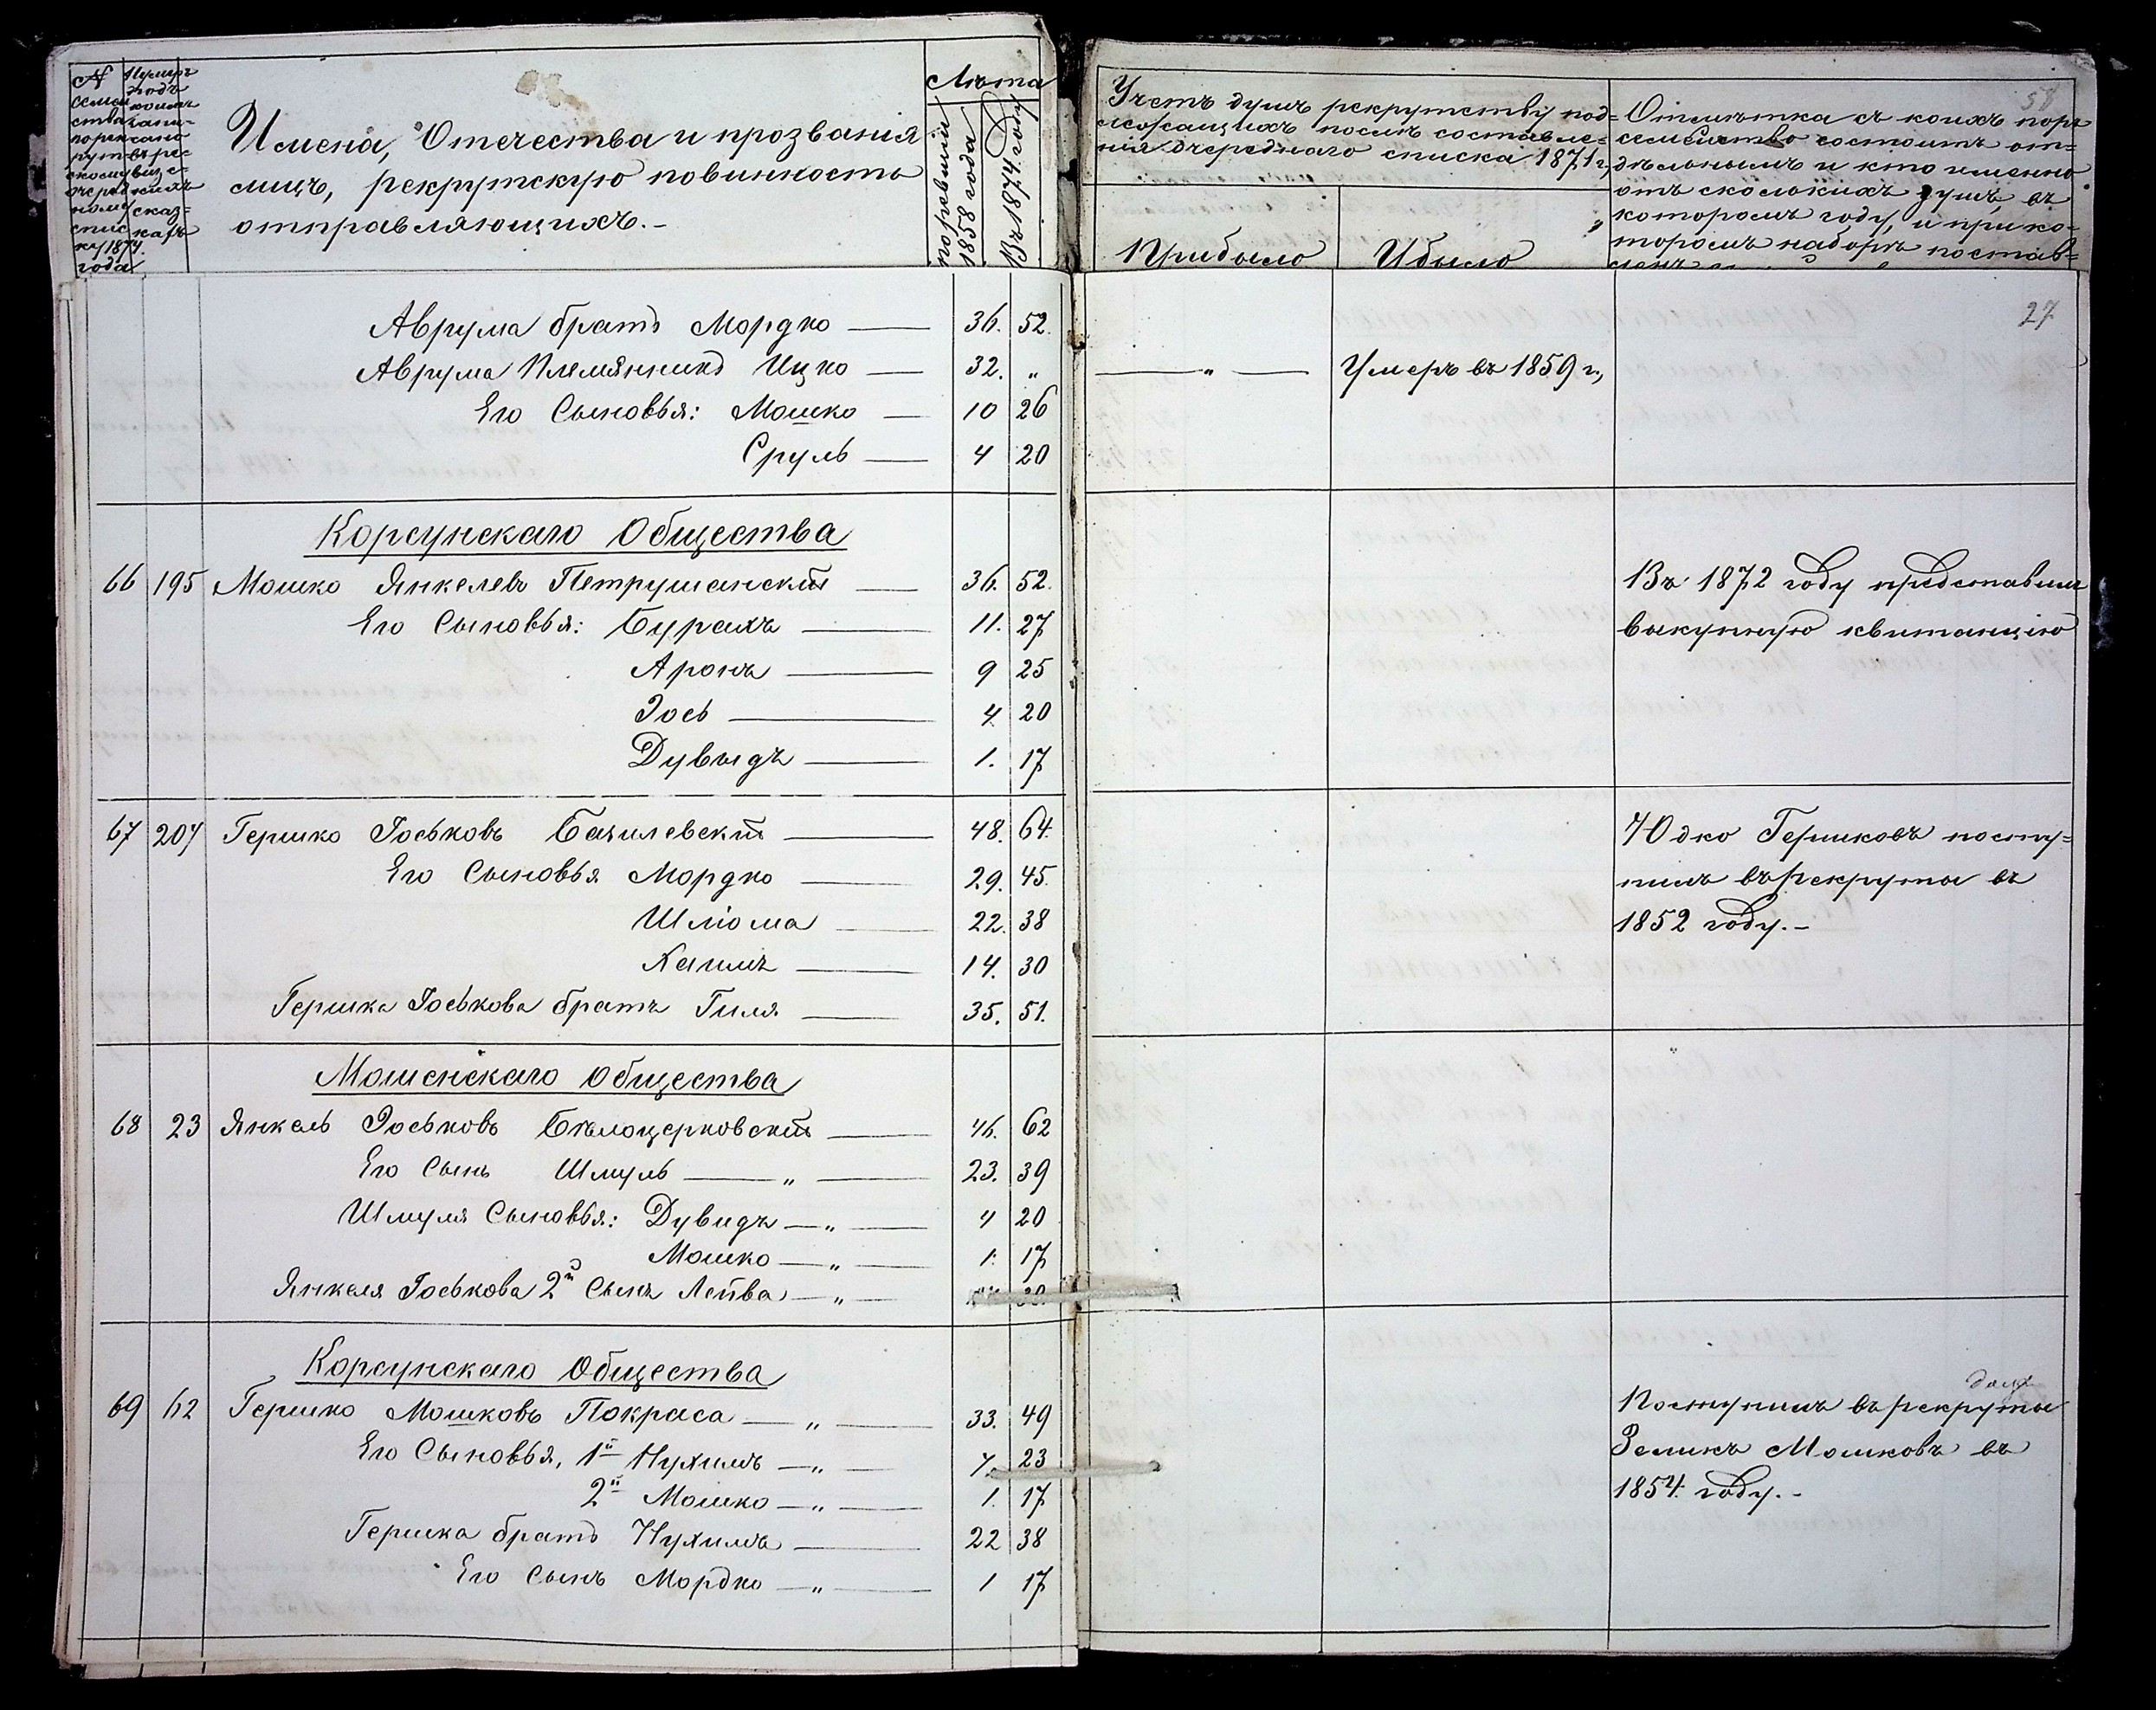 № семейства по рекрутскому очередному списку 1874 года
Нумеръ подъ коимъ записано въ ревизскихъ сказкахъ
Имена, Отечества и прозванія
лицъ, рекрутскую повинность
отправляющихъ.-
Лѣта
по ревизіи 1858 года
Въ 1874 году
Учетъ душъ рекрутству под=
лежащихъ послѣ составле=
нія очереднаго списка 1871 г,
Прибыло Убыло
58
Отмѣтка съ коихъ поръ
семейство состоитъ от=
дѣльнымъ и кто именно
отъ сколькихъ душъ, въ
которомъ году, и при ко=
торомъ наборѣ постав=
ленъ
27
Аврума братъ Мордко — 36. 52.
Аврума Племянникъ Ицко — 32. „ — „ — Умеръ въ 1859 г.,
Его Сыновья: Мошко — 10 26
Сруль — 4 20
Корсунскаго Общества
66 195 Мошко Янкелевъ Петрушанскій — 36. 52. Въ 1872 году представилъ
Его Сыновья: Бурахъ — 11. 27 выкупную квитанцію
Аронъ — 9 25
Іось — 4. 20
Дувыдъ — 1. 17
67 207 Гершко Іоськовъ Базилевскій — 48. 64. Юдко Гершковъ посту=
Его Сыновья Мордко — 29. 45. пилъ въ рекруты въ
Шліома — 22. 38 1852 году.-
Хаимъ — 14. 30
Гершка Іоськова братъ Гиля — 35. 51.
Мошенскаго Общества
68 23 Янкель Іоськовъ Бѣлоцерковскій — 46. 62
Его Сынъ Шмуль — „ — 23. 39
Шмуля Сыновья: Дувидъ — „ — 4 20
Мошко — „ — 1. 17
Янкеля Іоськова 2й Сынъ Лейба — „ —
Корсунскаго Общества
69 62 Гершко Мошковъ Покраса — „ — 33. 49 Поступилъ въ рекруты
Его Сыновья, 1й Нухимъ — „ — 7. 23 Зеликъ Мошковъ въ
2й Мошко — „ — 1. 17 1854. году.-
Гершка братъ Нухимъ — 22 38
Его Сынъ Мордко — „ — 1 17